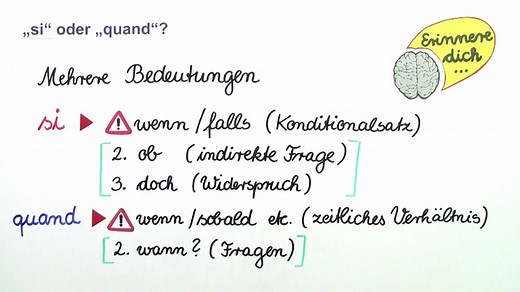 „si“ oder „quand“?
Erinnere
dich
...
Mehrere Bedeutungen
si ▶ ⚠ wenn/falls (Konditionalsatz)
2. ob (indirekte Frage)
3. doch (Widerspruch)
quand ▶ ⚠ wenn/sobald etc. (zeitliches Verhältnis)
2. wann? (Fragen)